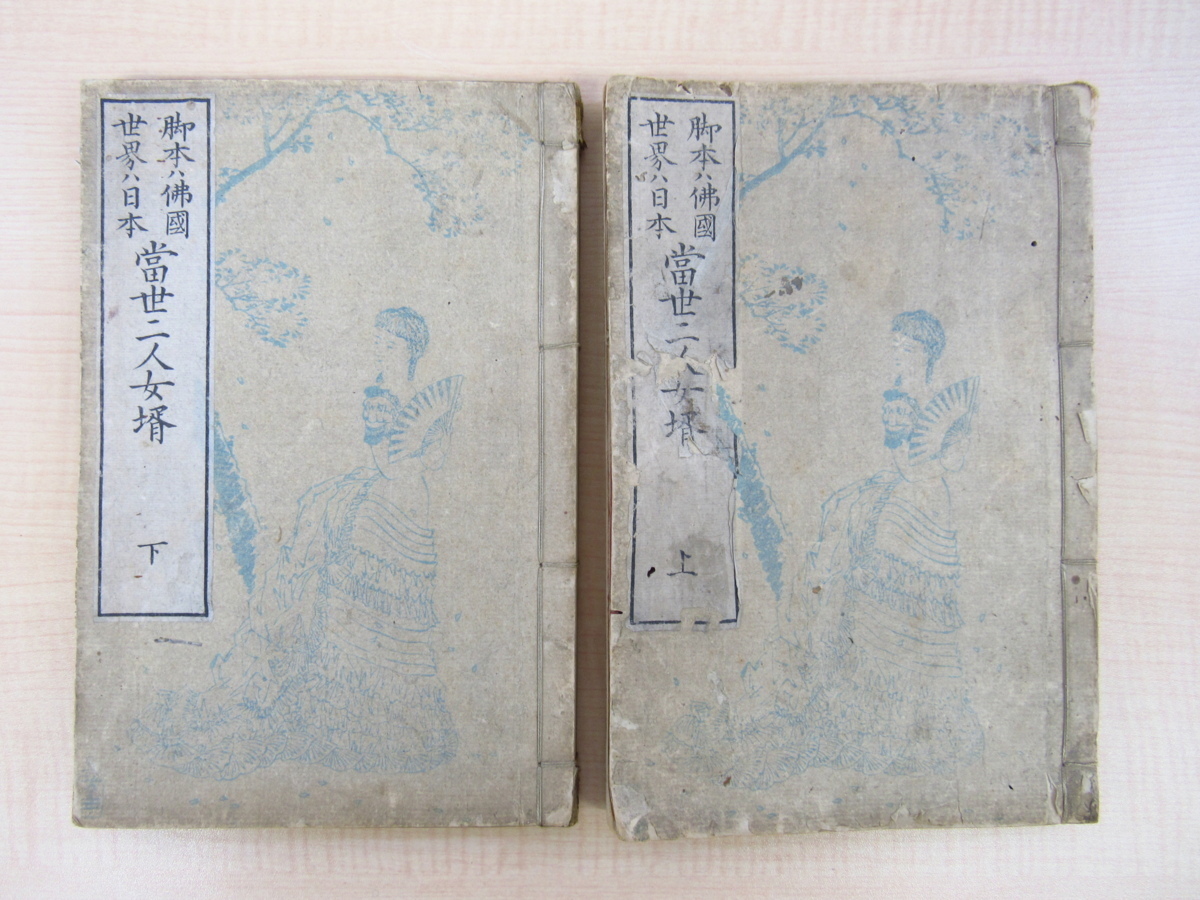 脚本ハ佛國
世界ハ日本
當世二人女壻
上
脚本ハ佛國
世界ハ日本
當世二人女壻
下